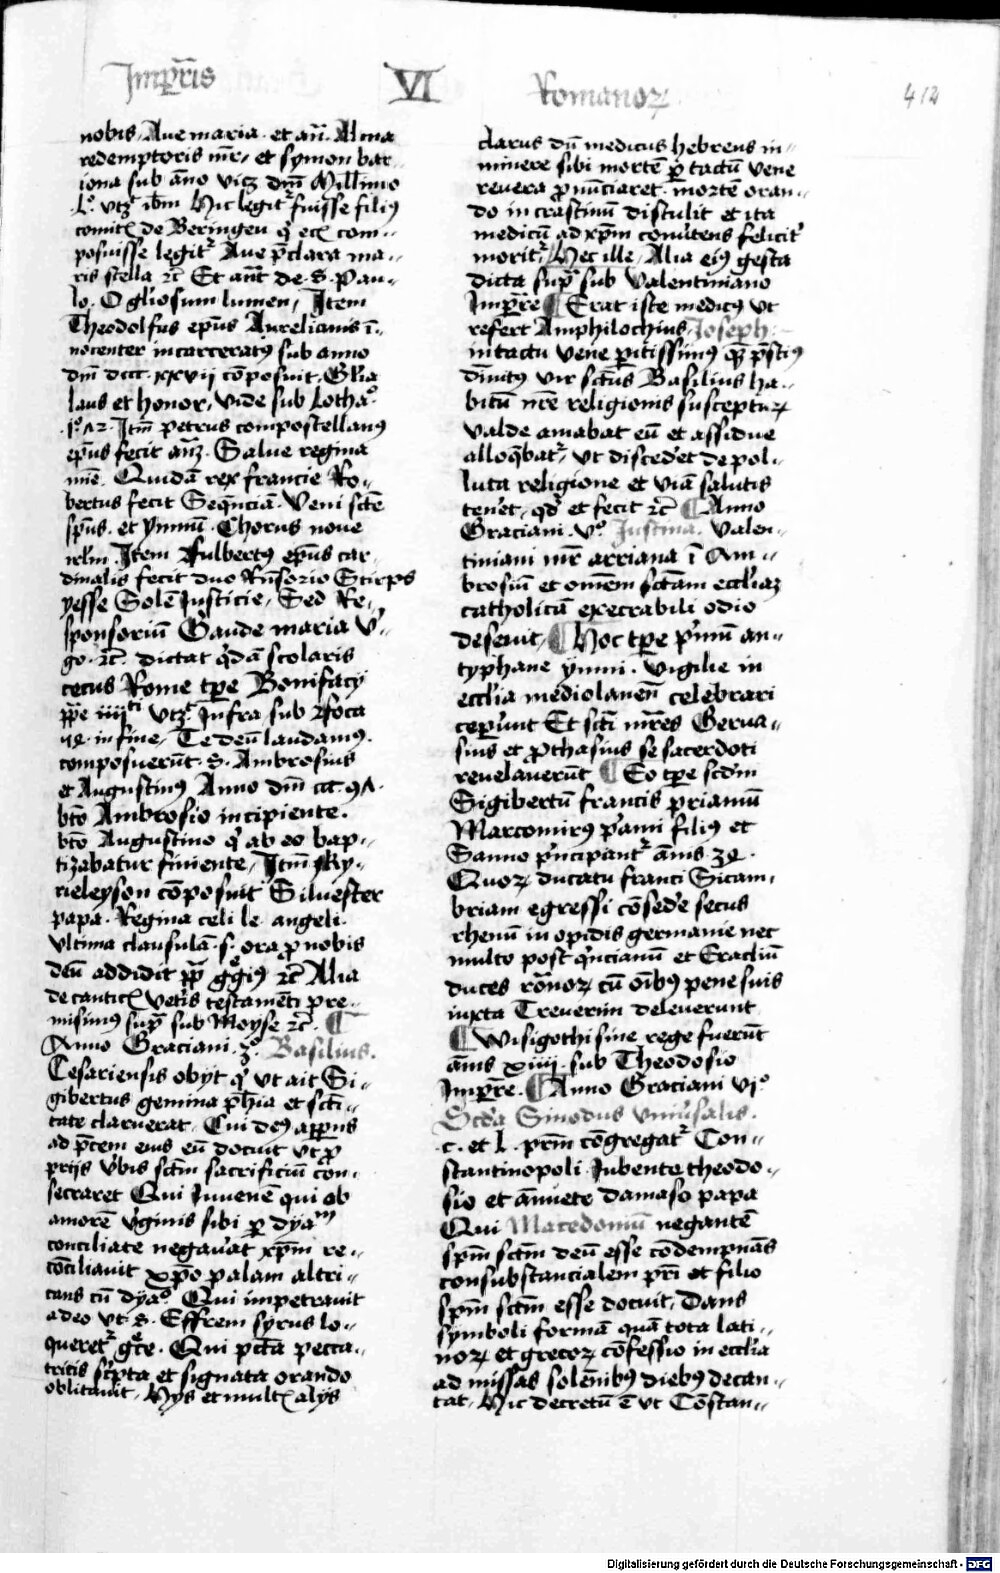 Impr̄ris VI Romanoꝝ 412
nobis, Aue maria. et an̄. Alma
redemptoris mr̄, et symon bar
iona sub an̄o vitꝫ dm̄ Millimo
.L.º vtꝫ ibm̄ Hic legitᷣ fuisse filiꝯ
comitꝭ de Beringen qͥ ecꝭ com
posuisse legitᷣ Aue p̄clara ma
ris stella ⁊c̄ Et ant̄ de .S. Pau
lo. O gl̄iosum lumen, Item
Theodolfus ep̄us Aurelianis ī
nocenter incarceratꝯ sub anno
dm̄ dccc.xxvii cōposuit, Gl̄ia
laus et honor, vide sub Lothaº
.iº.12. Itm̄ petrus compostellanꝰ
ep̄us fecit an̄ꝫ. Salue regina
mie. Quidā rex francie Ro
bertus fecit Seqn̄ciā. Veni sct̄e
sp̄us. et ymnū. Chorus noue
irl̄m. Item Fulbertꝯ ep̄us car
dinalis fecit duo Rn̄sorio Stirps
yesse Solē Justicie, Sed Re
sponsoriū Gaude maria v̓
go. ⁊c̄. dictat qͥdā scolaris
cecus Rome tp̄e Bonifacij
pp̄e iiijᵗⁱ vtꝫ Infra sub Foca
in fine, Te deū laudamꝯ.
composuerūt .S. Ambrosius
et Augustinꝯ Anno dm̄
bt̄o Ambrosio incipiente.
bt̄o Augustino qͥ ab eo bap
tizabatur finiente, Itm̄ Ky
rieleyson cōposuit Siluester
papa. Regina celi le angeli.
vltima clausulā .s. ora ꝓ nobis
deū addidit pp̄ gᵉgiꝯ ⁊c̄ Alia
de canticꝭ vet̓is testamēti pre
misimꝯ supᷓ sub Moyse ⁊c̄. ¶
Anno Graciani .3.º Basilius.
Cesariensis obijt qͥ vt ait Si
gibertus gemina ph̄ia et scti
tate claruerat, Cui deꝯ apparuis
ad p̄cem eius eū docuit vt ꝓ
prijs v̓bis sct̄m sacrificiū con
secraret Qui Iuuenē qui ob
amorē v̓ginis sibi ꝑ dyaᵐ
conciliate negau̓at xp̄m re
cōciliauit xp̄o palam altri
cans cū dyaº. Qui impetrauit
a deo vt .S. Effrem syrus lo
queretᷣ gᵉce. Qui pct̄a pecca
tricis sc̓pta et signata orando
oblitauit, Hijs et multꝭ alijs
clarus dū medicus hebreus in
minere sibi mortē ꝑ tactū vene
reuera ꝓnūciaret. mortē oran
do in crastinū distulit et ita
medicū ad xp̄m conu̓tens felicit̓
moritᷣ, Hec ille, Alia eiꝯ gesta
dicta supᷓ sub Valentiniano
Impr̄re ¶ Erat iste medicꝯ vt
refert Amphilochius, Joseph
in tactu vene peritissimꝯ qᷓ p̄sciꝯ
diuitꝯ vir sct̄us Basilius ha
bitū nr̄e religionis suscepturꝫ
valde amabat eū et assidue
alloqͣbatᷣ, vt disced̓et de pol
luta religione et viā salutis
ten̓et, qd̓ et fecit ⁊c̄ ¶ Anno
Graciani .V.º Justina. Valen
tiniani mr̄ arriana ī Am
brosiū et omēm sct̄am eccl̄iaꝫ
catholicā execrabili odio
deseuit, ¶ Hoc tp̄e p̓mū an
typhane ymni. vigilie in
eccl̄ia mediolanen̄ celebrari
cep̓unt Et sct̄i mr̄es Gerua
sius et ꝓthasius se sacerdoti
reuelauerūt ¶ Eo tp̄e scd̄m
Sigibertū francis priamū
Marcomirꝯ p̓ami filiꝯ et
Sanno p̓ncipantᷣ annis .3
Quoꝝ ducatu franci Sicam
briam egressi cōsed̓e secus
rhenū in opidis germanie nec
multo post qncianū et Eracliū
duces rōnoꝝ cū oībꝯ pene suis
iuxta Treuerim deleuerunt
¶ Wisigothi sine rege fuerūt
annis xiiij. sub Theodosio
Impr̄re. ¶ Anno Graciani vi.º
Scd̓a Sinodus vniu̓salis.
.c. et l. prm̄ cōgregatᷣ Con
stantinopoli Iubente theodo
sio et annuēte damaso papa
Qui Macedoniū negantē
sp̄m sct̄m deū esse cōdempnās
consubstancialem pri et filio
sp̄m sct̄m esse docuit, Dans
symboli formā quā tota lati
noꝝ et grecoꝝ cōfessio in eccl̄ia
ad missas solēnibꝯ diebꝯ decan
tat, Hic decretū ē vt Cōstan